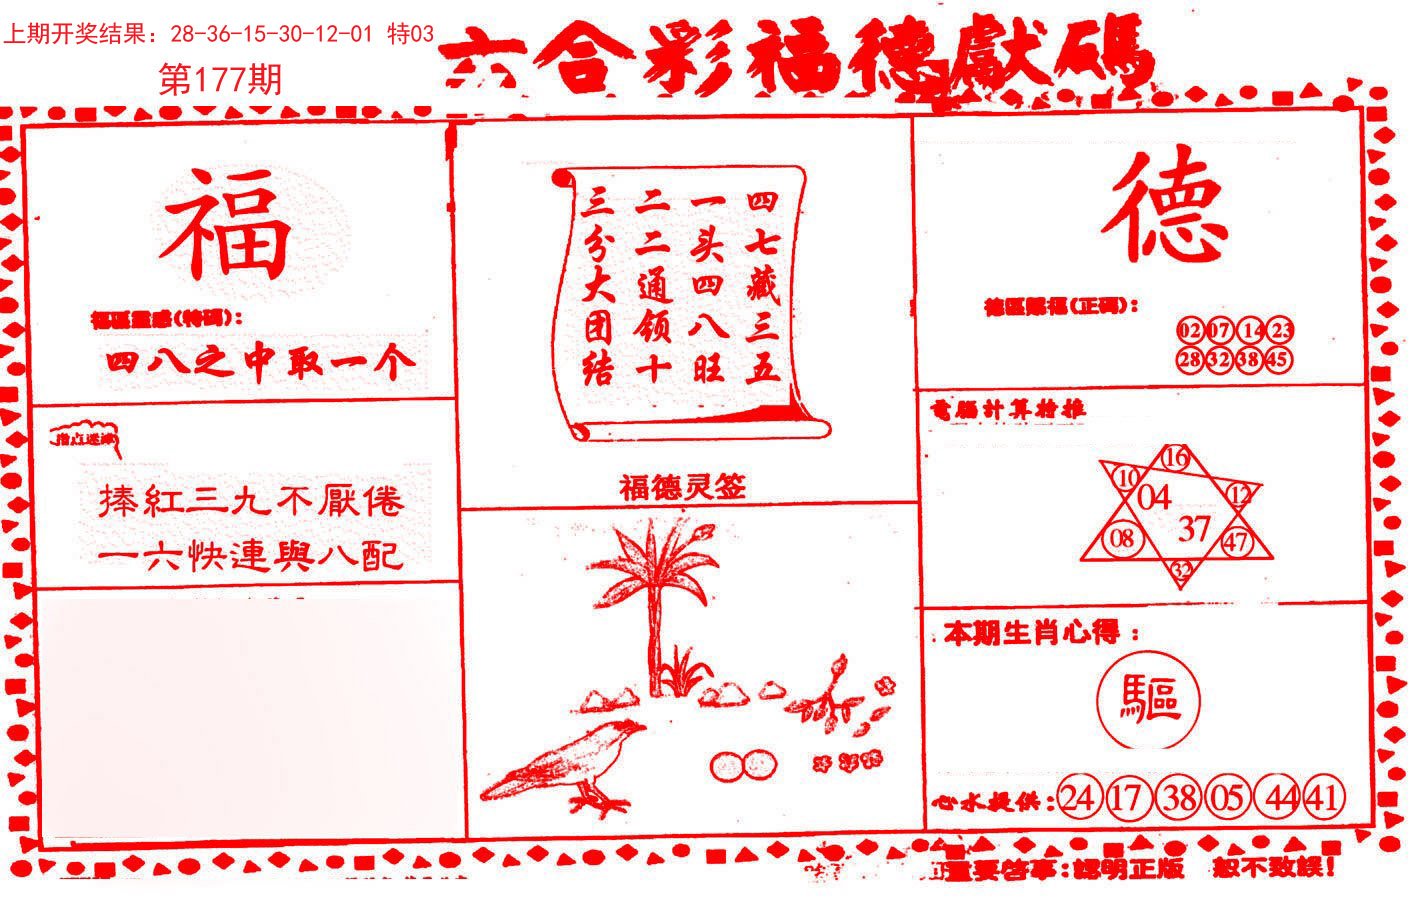 上期开奖结果：28-36-15-30-12-01 特03
第177期
六合彩福德獻碼
福
福區靈感(特碼)：
四八之中取一个
指点迷津
捧紅三九不厭倦
一六快連與八配
四七藏三五
一头四八旺
二二通领十
三分大团结
福德灵签
德
德區賜福(正碼)：
02 07 14 23
28 32 38 45
電腦計算特推
16
10 04 12
08 37 47
32
本期生肖心得：
驅
心水提供：24 17 38 05 44 41
重要啓事：認明正版 恕不致誤！